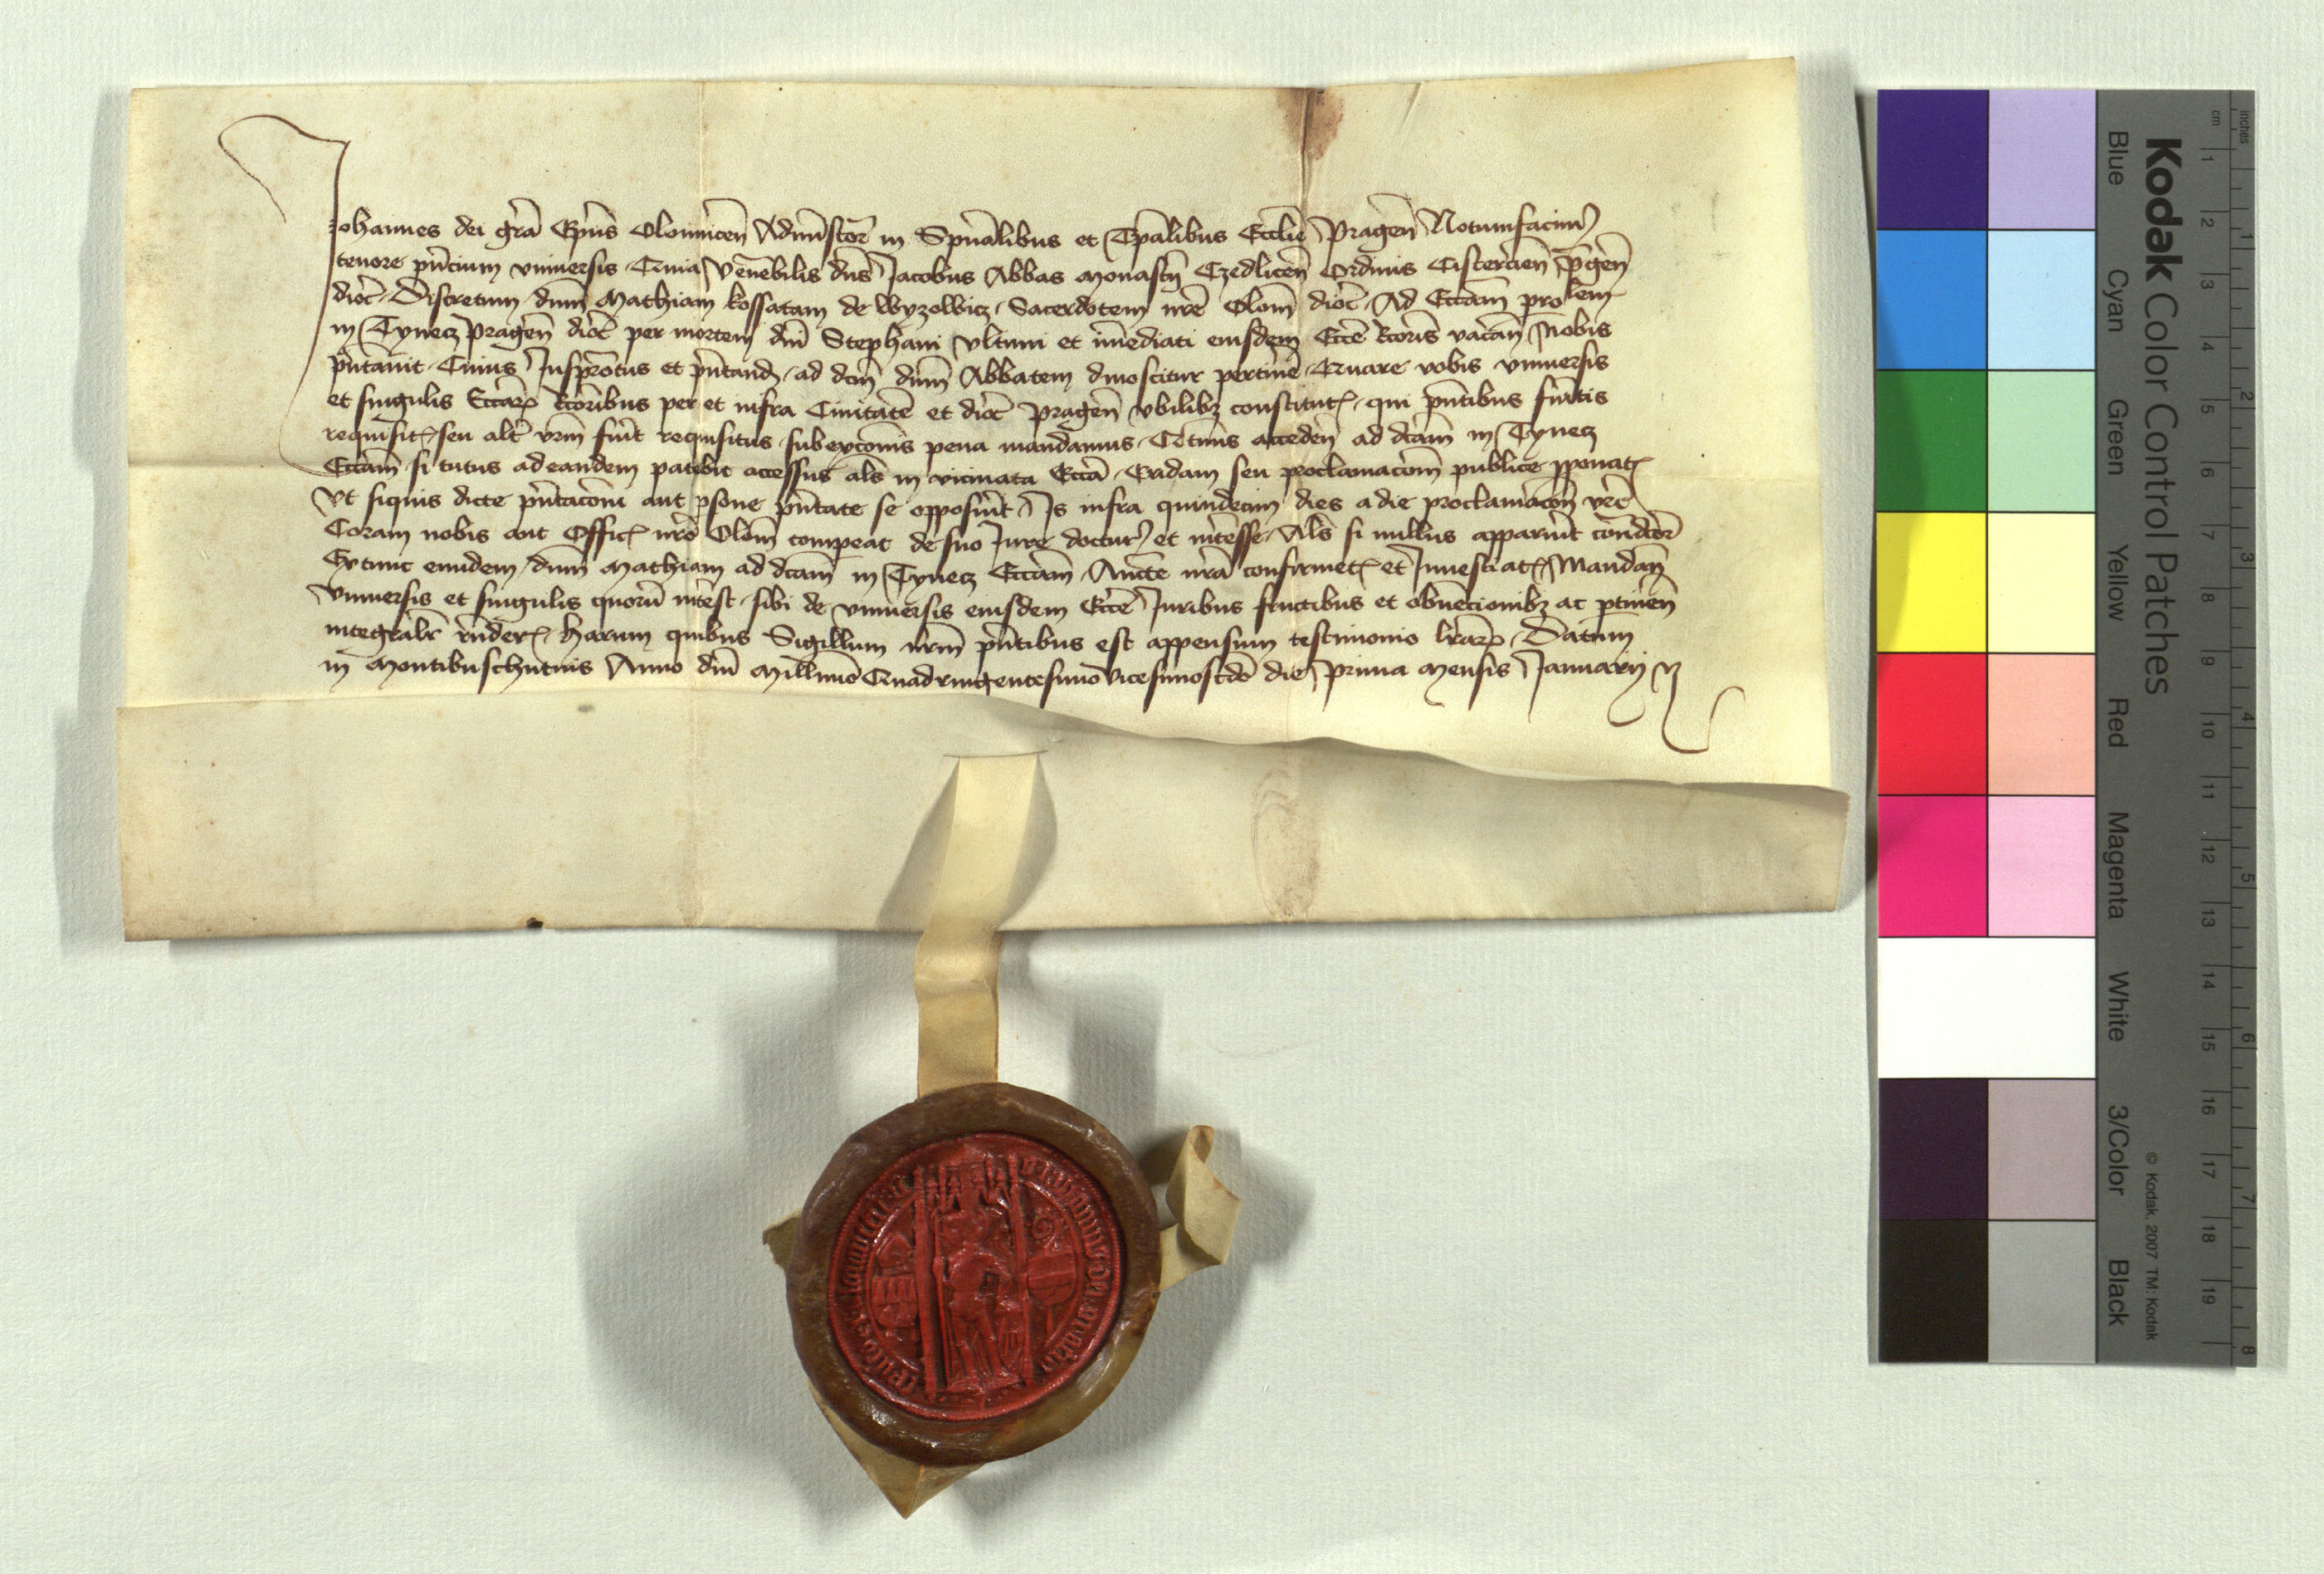 Johannes dei grã Ep̃us Olomucen̄ Adm̃stor̄ in Sp̃ualibus et Tp̃alibus Eccl̃ie Pragen̄ Notumfacimꝰ
tenore pñcium vniuersis Quia Venẽbilis dñs Jacobus Abbas monastẽ Czedlicen̄ Ordinis Cisterciẽn p̃gen̄
dioc̃ Discretum dñm Mathiam kossatam de Wyzolwicz Sacerdotem nr̃e Olom̃ dioc̃ Ad Ecc̃am prolem
in Tynecz Pragen̄ dioc̃ per mortem dñi Stephani vltimi et im̃ediati eiusdem Ecc̃e Rcoris vacan̄ nobis
pñtauit Cuius Juspr̃otus et pñtand ad dc̃m dñm Abbatem dinoscitur pertinẽ Quare vobis vniuersis
et singulis Ecc̃aꝝ Rcoribus per et infra Ciuitatẽ et dioc̃ Pragen̄ vbilibꝫ constitutꝭ qui pñtibus fũitis
requisitꝭ seu alt̃ vr̃m fũit requisitus sub exc̃om̃is pena mandamus Q̃tinus acceden̄ ad dc̃am in Tynecz
Ecc̃am si tutus ad eandem patebit accessus al̃s in vicinata Ecc̃a Cridam seu proclamac̃om̃ publice ꝓponatꝭ
Vt siquis dicte pñtac̃oni aut ꝑsone pñtate se opposũit Is infra quindecim dies a die proclamac̃on̄ vr̃e
Coram nobis aut Officꝭ nr̃o Olom̃ compeat de suo Jure docturꝰ et int̃esse Al̃s si nullus apparũit conᵭcor̄
Extunc eundem dñm Mathiam ad dc̃am in Tynecz Ecc̃am Auc̃te nr̃a confirmetꝭ et Inuestiatꝭ Mandan̄
Vniuersis et singulis quorũ int̃est sibi de vniuersis eiusdem Ecc̃e Juribus fructibus et obuẽcionibꝫ ac ꝑtinen̄
integralr̄ r̃nderꝭ Harum quibus Sigillum nr̃m pñtibus est appensum testimonio lr̃aꝝ Datum
in Montibuschutnis Anno dñi Mill̃imo Quadringentesimo vicesimoscd̃o die Prima Mensis Januarij
Kodak Color Control Patches
Blue Cyan Green Yellow Red Magenta White 3/Color Black
© Kodak, 2007 TM: Kodak
cm 1 2 3 4 5 6 7 8 9 10 11 12 13 14 15 16 17 18 19
inches 1 2 3 4 5 6 7 8